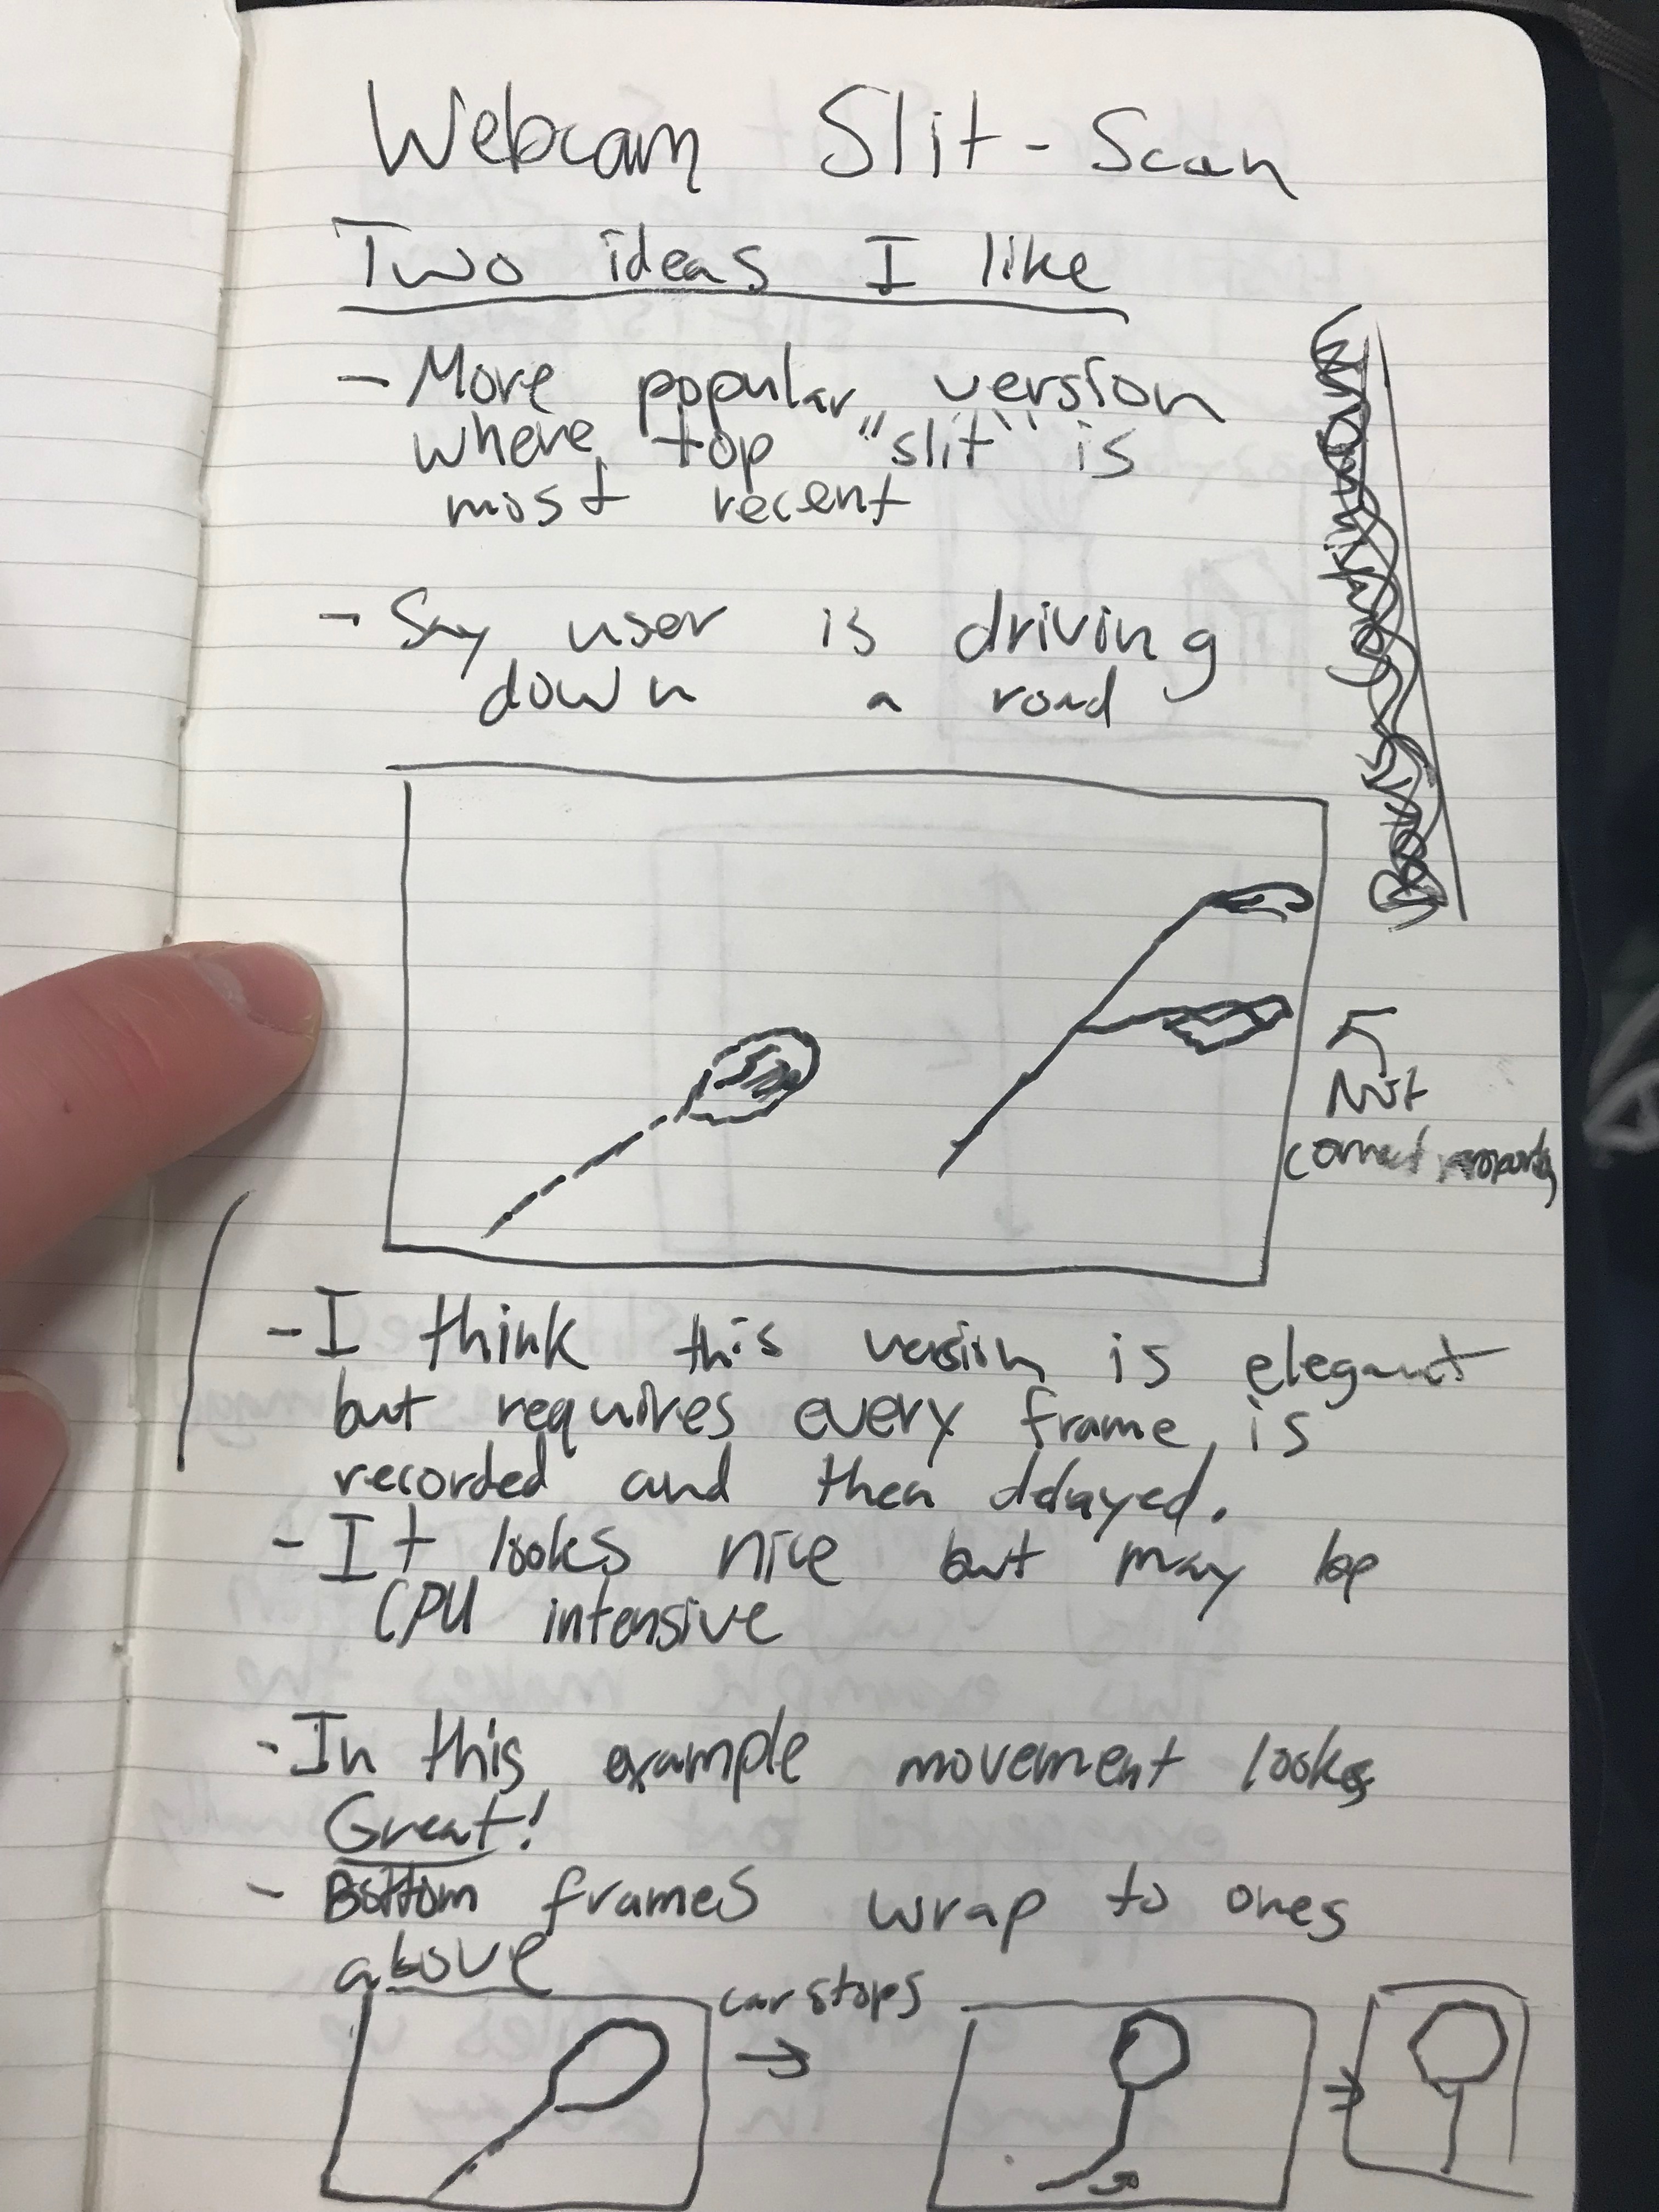 Webcam Slit-Scan
Two ideas I like
- More popular version
where top "slit" is
most recent
- Say user is driving
down a road
Stop
Not
correct
- I think this version is elegant
but requires every frame is
recorded and then delayed.
- It looks nice but may be
CPU intensive
- In this example movement looks
Great!
- Bottom frames wrap to ones
above
car stops